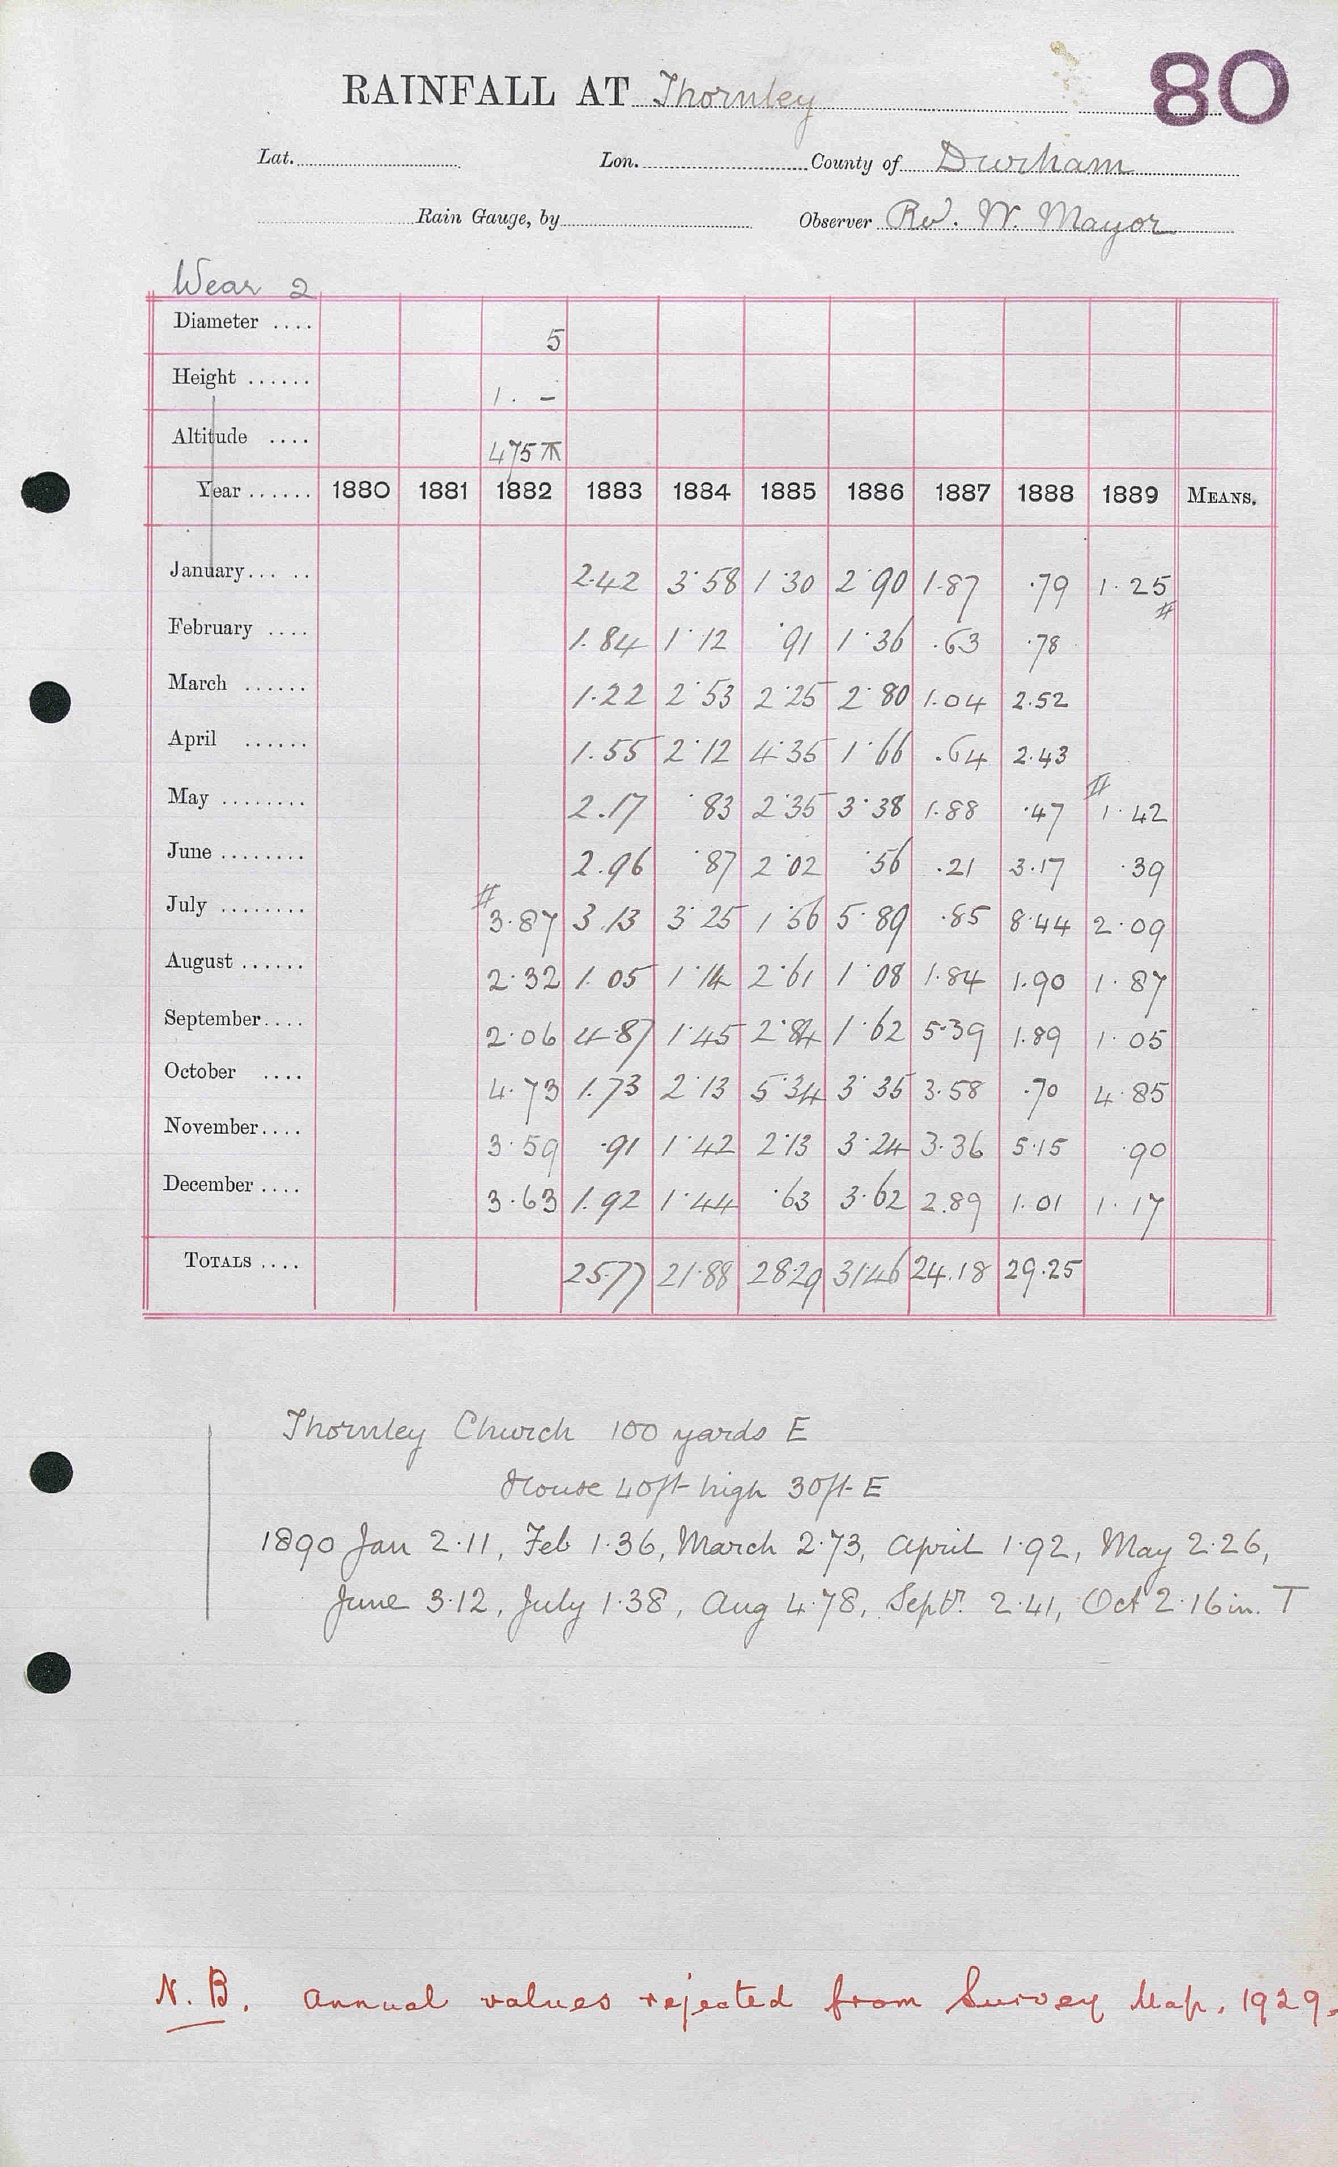 80
RAINFALL AT Thornley
Lat. Lon. County of Durham
Rain Gauge, by Observer Rev. W. Mayor
Wear 2
Diameter .... 5
Height ...... 1. -
Altitude .... 475
Year ...... 1880 1881 1882 1883 1884 1885 1886 1887 1888 1889 MEANS.
January... .. 2.42 3.58 1.30 2.90 1.87 .79 1.25 #
February .... 1.84 1.12 .91 1.36 .63 .78
March ...... 1.22 2.53 2.25 2.80 1.04 2.52
April ...... 1.55 2.12 4.35 1.66 .64 2.43
May ........ 2.17 .83 2.35 3.38 1.88 .47 # 1.42
June ........ 2.96 .87 2.02 .56 .21 3.17 .39
July ........ # 3.87 3.13 3.25 1.56 5.89 .85 8.44 2.09
August ...... 2.32 1.05 1.14 2.61 1.08 1.84 1.90 1.87
September.... 2.06 4.87 1.45 2.84 1.62 5.39 1.89 1.05
October .... 4.73 1.73 2.13 5.34 3.35 3.58 .70 4.85
November.... 3.59 .91 1.42 2.13 3.24 3.36 5.15 .90
December .... 3.63 1.92 1.44 .63 3.62 2.89 1.01 1.17
TOTALS .... 25.77 21.88 28.29 31.46 24.18 29.25
Thornley Church 100 yards E
House 40ft high 30ft E
1890 Jan 2.11, Feb 1.36, March 2.73, April 1.92, May 2.26,
June 3.12, July 1.38, Aug 4.78, Sept. 2.41, Oct 2.16 in. T
N.B. Annual values rejected from Survey Map. 1929.